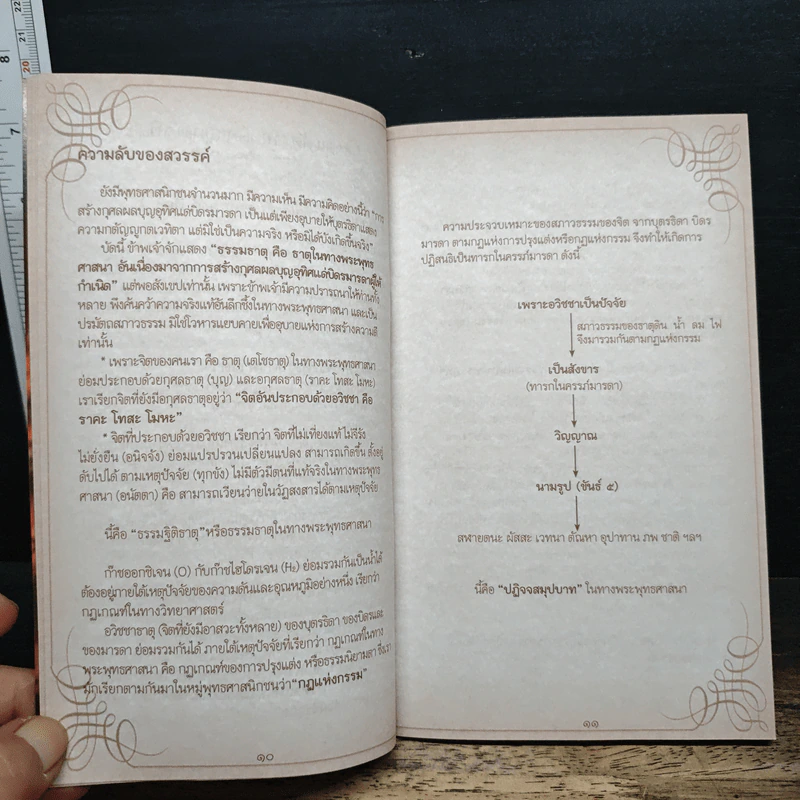 ความลับของสวรรค์
ยังมีพุทธศาสนิกชนจำนวนมาก มีความเห็น มีความคิดอย่างนี้ว่า "การ
สร้างกุศลผลบุญอุทิศแด่บิดรมารดา เป็นแต่เพียงอุบายให้บุตรธิดาแสดง
ความกตัญญูกตเวทิตา แต่มิใช่เป็นความจริง หรือมิได้บังเกิดขึ้นจริง"
บัดนี้ ข้าพเจ้าจักแสดง "ธรรมธาตุ คือ ธาตุในทางพระพุทธ
ศาสนา อันเนื่องมาจากการสร้างกุศลผลบุญอุทิศแด่บิดรมารดาผู้ให้
กำเนิด" แต่พอสังเขปเท่านั้น เพราะข้าพเจ้ามีความปรารถนาให้ท่านทั้ง
หลาย พึงค้นคว้าความจริงแท้อันลึกซึ้งในทางพระพุทธศาสนา และเป็น
ปรมัตถสภาวธรรม มิใช่โวหารแยบคายเพื่ออุบายแห่งการสร้างความดี
เท่านั้น
* เพราะจิตของคนเรา คือ ธาตุ (เตโชธาตุ) ในทางพระพุทธศาสนา
ย่อมประกอบด้วยกุศลธาตุ (บุญ) และอกุศลธาตุ (ราคะ โทสะ โมหะ)
เราเรียกจิตที่ยังมีอกุศลธาตุอยู่ว่า "จิตอันประกอบด้วยอวิชชา คือ
ราคะ โทสะ โมหะ"
* จิตที่ประกอบด้วยอวิชชา เรียกว่า จิตที่ไม่เที่ยงแท้ ไม่จีรัง
ไม่ยั่งยืน (อนิจจัง) ย่อมแปรปรวนเปลี่ยนแปลง สามารถเกิดขึ้น ตั้งอยู่
ดับไปได้ ตามเหตุปัจจัย (ทุกขัง) ไม่มีตัวมีตนที่แท้จริงในทางพระพุทธ
ศาสนา (อนัตตา) คือ สามารถเวียนว่ายในวัฏสงสารได้ตามเหตุปัจจัย
นี้คือ "ธรรมฐิติธาตุ" หรือธรรมธาตุในทางพระพุทธศาสนา
ก๊าซออกซิเจน (O) กับก๊าซไฮโดรเจน (H₂) ย่อมรวมกันเป็นน้ำได้
ต้องอยู่ภายใต้เหตุปัจจัยของความดันและอุณหภูมิอย่างหนึ่ง เรียกว่า
กฎเกณฑ์ในทางวิทยาศาสตร์
อวิชชาธาตุ (จิตที่ยังมีอาสวะทั้งหลาย) ของบุตรธิดา ของบิดรและ
ของมารดา ย่อมรวมกันได้ ภายใต้เหตุปัจจัยที่เรียกว่า กฎเกณฑ์ในทาง
พระพุทธศาสนา คือ กฎเกณฑ์ของการปรุงแต่ง หรือธรรมนิยามตา ซึ่งเรา
มักเรียกตามกันมาในหมู่พุทธศาสนิกชนว่า "กฎแห่งกรรม"
๑๐
ความประจวบเหมาะของสภาวธรรมของจิต จากบุตรธิดา บิดร
มารดา ตามกฎแห่งการปรุงแต่งหรือกฎแห่งกรรม จึงทำให้เกิดการ
ปฏิสนธิเป็นทารกในครรภ์มารดา ดังนี้
เพราะอวิชชาเป็นปัจจัย
สภาวธรรมของธาตุดิน น้ำ ลม ไฟ
จึงมารวมกันตามกฎแห่งกรรม
เป็นสังขาร
(ทารกในครรภ์มารดา)
วิญญาณ
นามรูป (ขันธ์ ๕)
สฬายตนะ ผัสสะ เวทนา ตัณหา อุปาทาน ภพ ชาติ ฯลฯ
นี้คือ "ปฏิจจสมุปบาท" ในทางพระพุทธศาสนา
๑๑
7
8
20
21
22